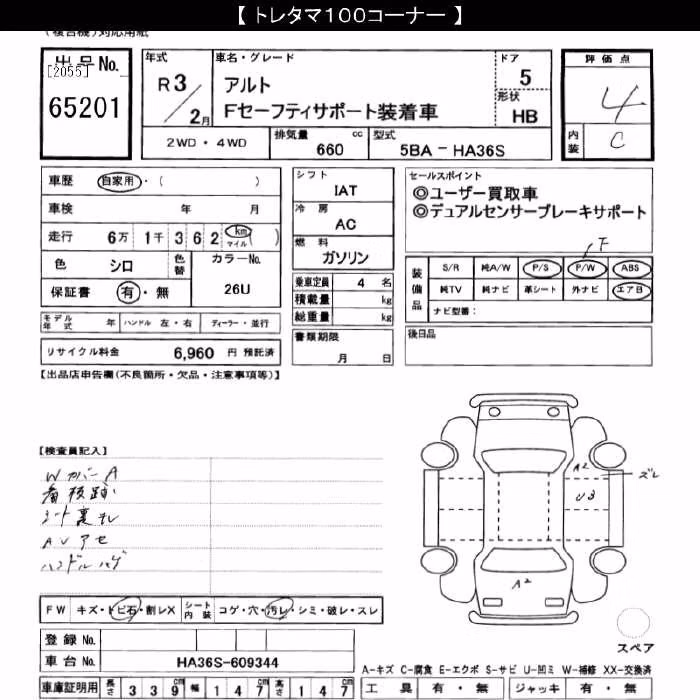 【 トレタマ１００コーナー 】
(複合機)対応用紙
出品No.
[2055]
65201
年式
R3/2月
車名・グレード
アルト
Fセーフティサポート装着車
ドア
5
形状
HB
評価点
4
内装
C
2WD・4WD
排気量 cc
660
型式
5BA-HA36S
車歴 自家用・( )
車検 年 月
走行 6万 1千 3 6 2 km マイル ( )
色 シロ 色替
カラーNo.
26U
保証書 有・無
シフト
IAT
冷房
AC
燃料
ガソリン
乗車定員 4 名
積載量 kg
総重量 kg
セールスポイント
◎ユーザー買取車
◎デュアルセンサーブレーキサポート
F
装備品
S/R 純A/W P/S P/W ABS
純TV 純ナビ 革シート 外ナビ エアB
ナビ型番：
モデル年式 年 ハンドル 左・右 ディーラー・並行
リサイクル料金 6,960 円 預託済
書類期限
月 日
後日品
【出品店申告欄(不良箇所・欠品・注意事項等)】
【検査員記入】
Wカバー A
シート裏キレ
AVアセ
ハンドルハゲ
A2
U3
ズレ
A2
スペア
FW キズ・トビ石・割レX シート内装 コゲ・穴・汚レ・シミ・破レ・スレ
登録No.
車台No. HA36S-609344
A-キズ C-腐食 E-エクボ S-サビ U-凹ミ W-補修 XX-交換済
車庫証明用 長さ 3 3 9 cm 幅 1 4 7 cm 高さ 1 4 7 cm
工具 有・無 ジャッキ 有・無